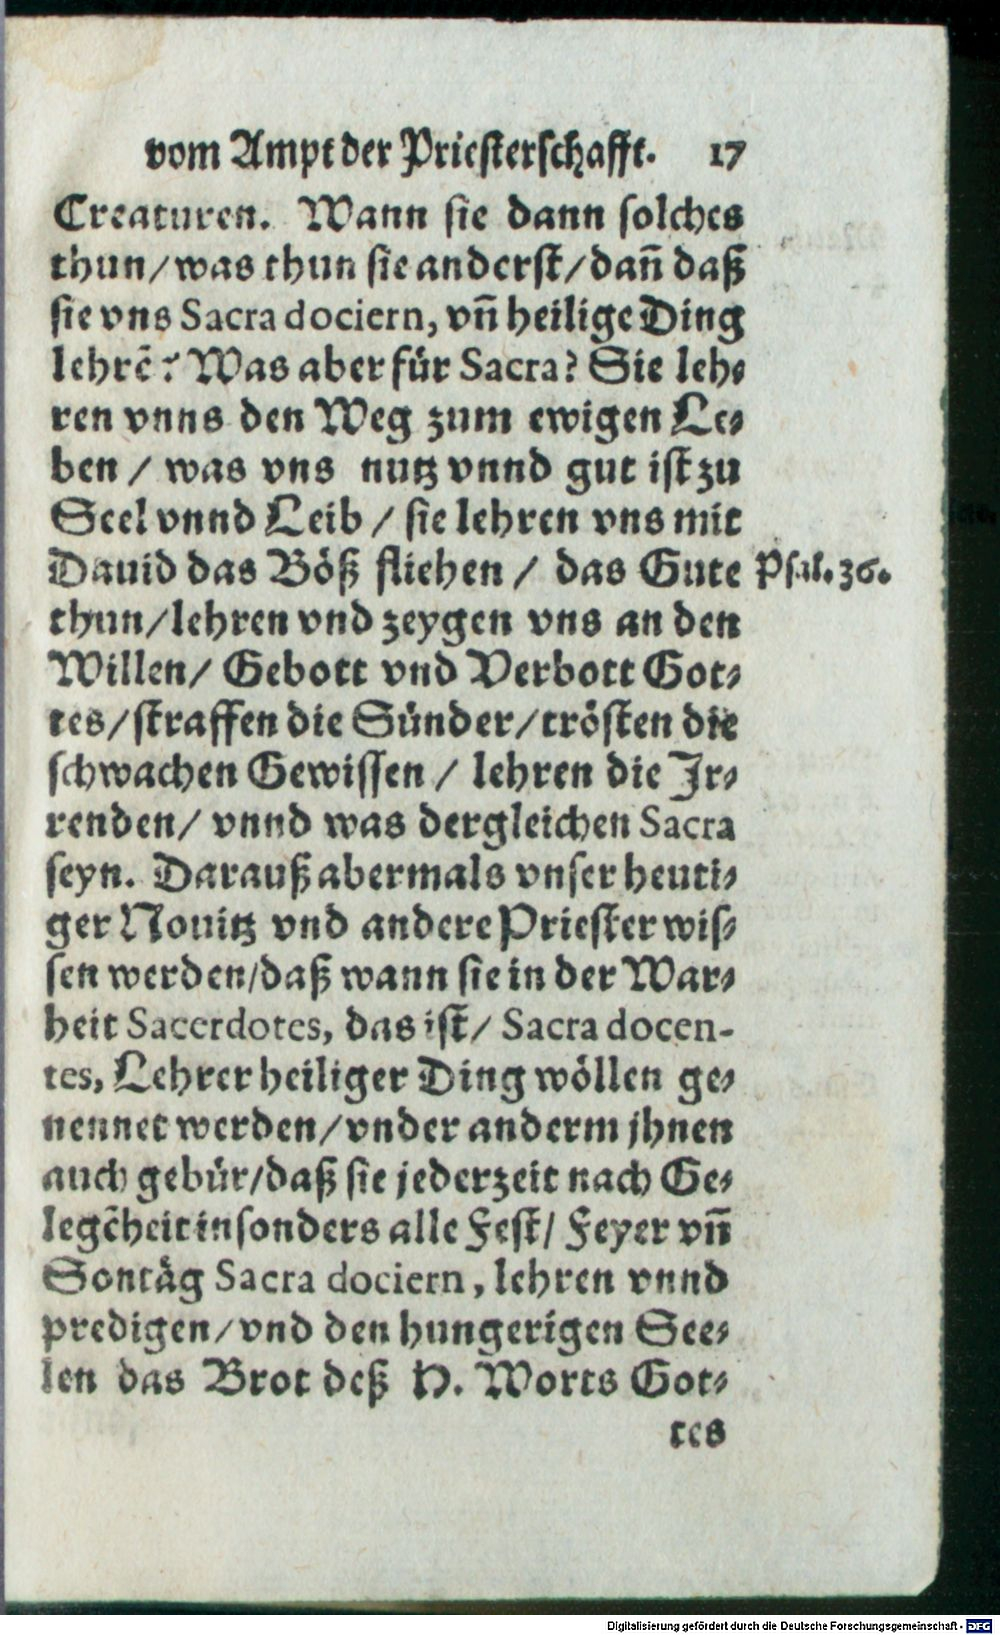 vom Ampt der Priesterschafft. 17
Creaturen. Wann sie dann solches
thun/was thun sie anderst/dañ daß
sie vns Sacra dociern, vñ heilige Ding
lehrẽ? Was aber für Sacra? Sie leh-
ren vnns den Weg zum ewigen Le-
ben / was vns nutz vnnd gut ist zu
Seel vnnd Leib / sie lehren vns mit
Dauid das Böß fliehen / das Gute Psal. 36.
thun/lehren vnd zeygen vns an den
Willen/ Gebott vnd Verbott Got-
tes/straffen die Sünder/trösten die
schwachen Gewissen / lehren die Jr-
renden/ vnnd was dergleichen Sacra
seyn. Darauß abermals vnser heuti-
ger Nouitz vnd andere Priester wis-
sen werden/daß wann sie in der War-
heit Sacerdotes, das ist/ Sacra docen-
tes, Lehrer heiliger Ding wöllen ge-
nennet werden/vnder anderm jhnen
auch gebür/daß sie jederzeit nach Ge-
legẽheit insonders alle Fest/ Feyer vñ
Sontäg Sacra dociern, lehren vnnd
predigen/vnd den hungerigen See-
len das Brot deß H. Worts Got-
tes
Digitalisierung gefördert durch die Deutsche Forschungsgemeinschaft - DFG